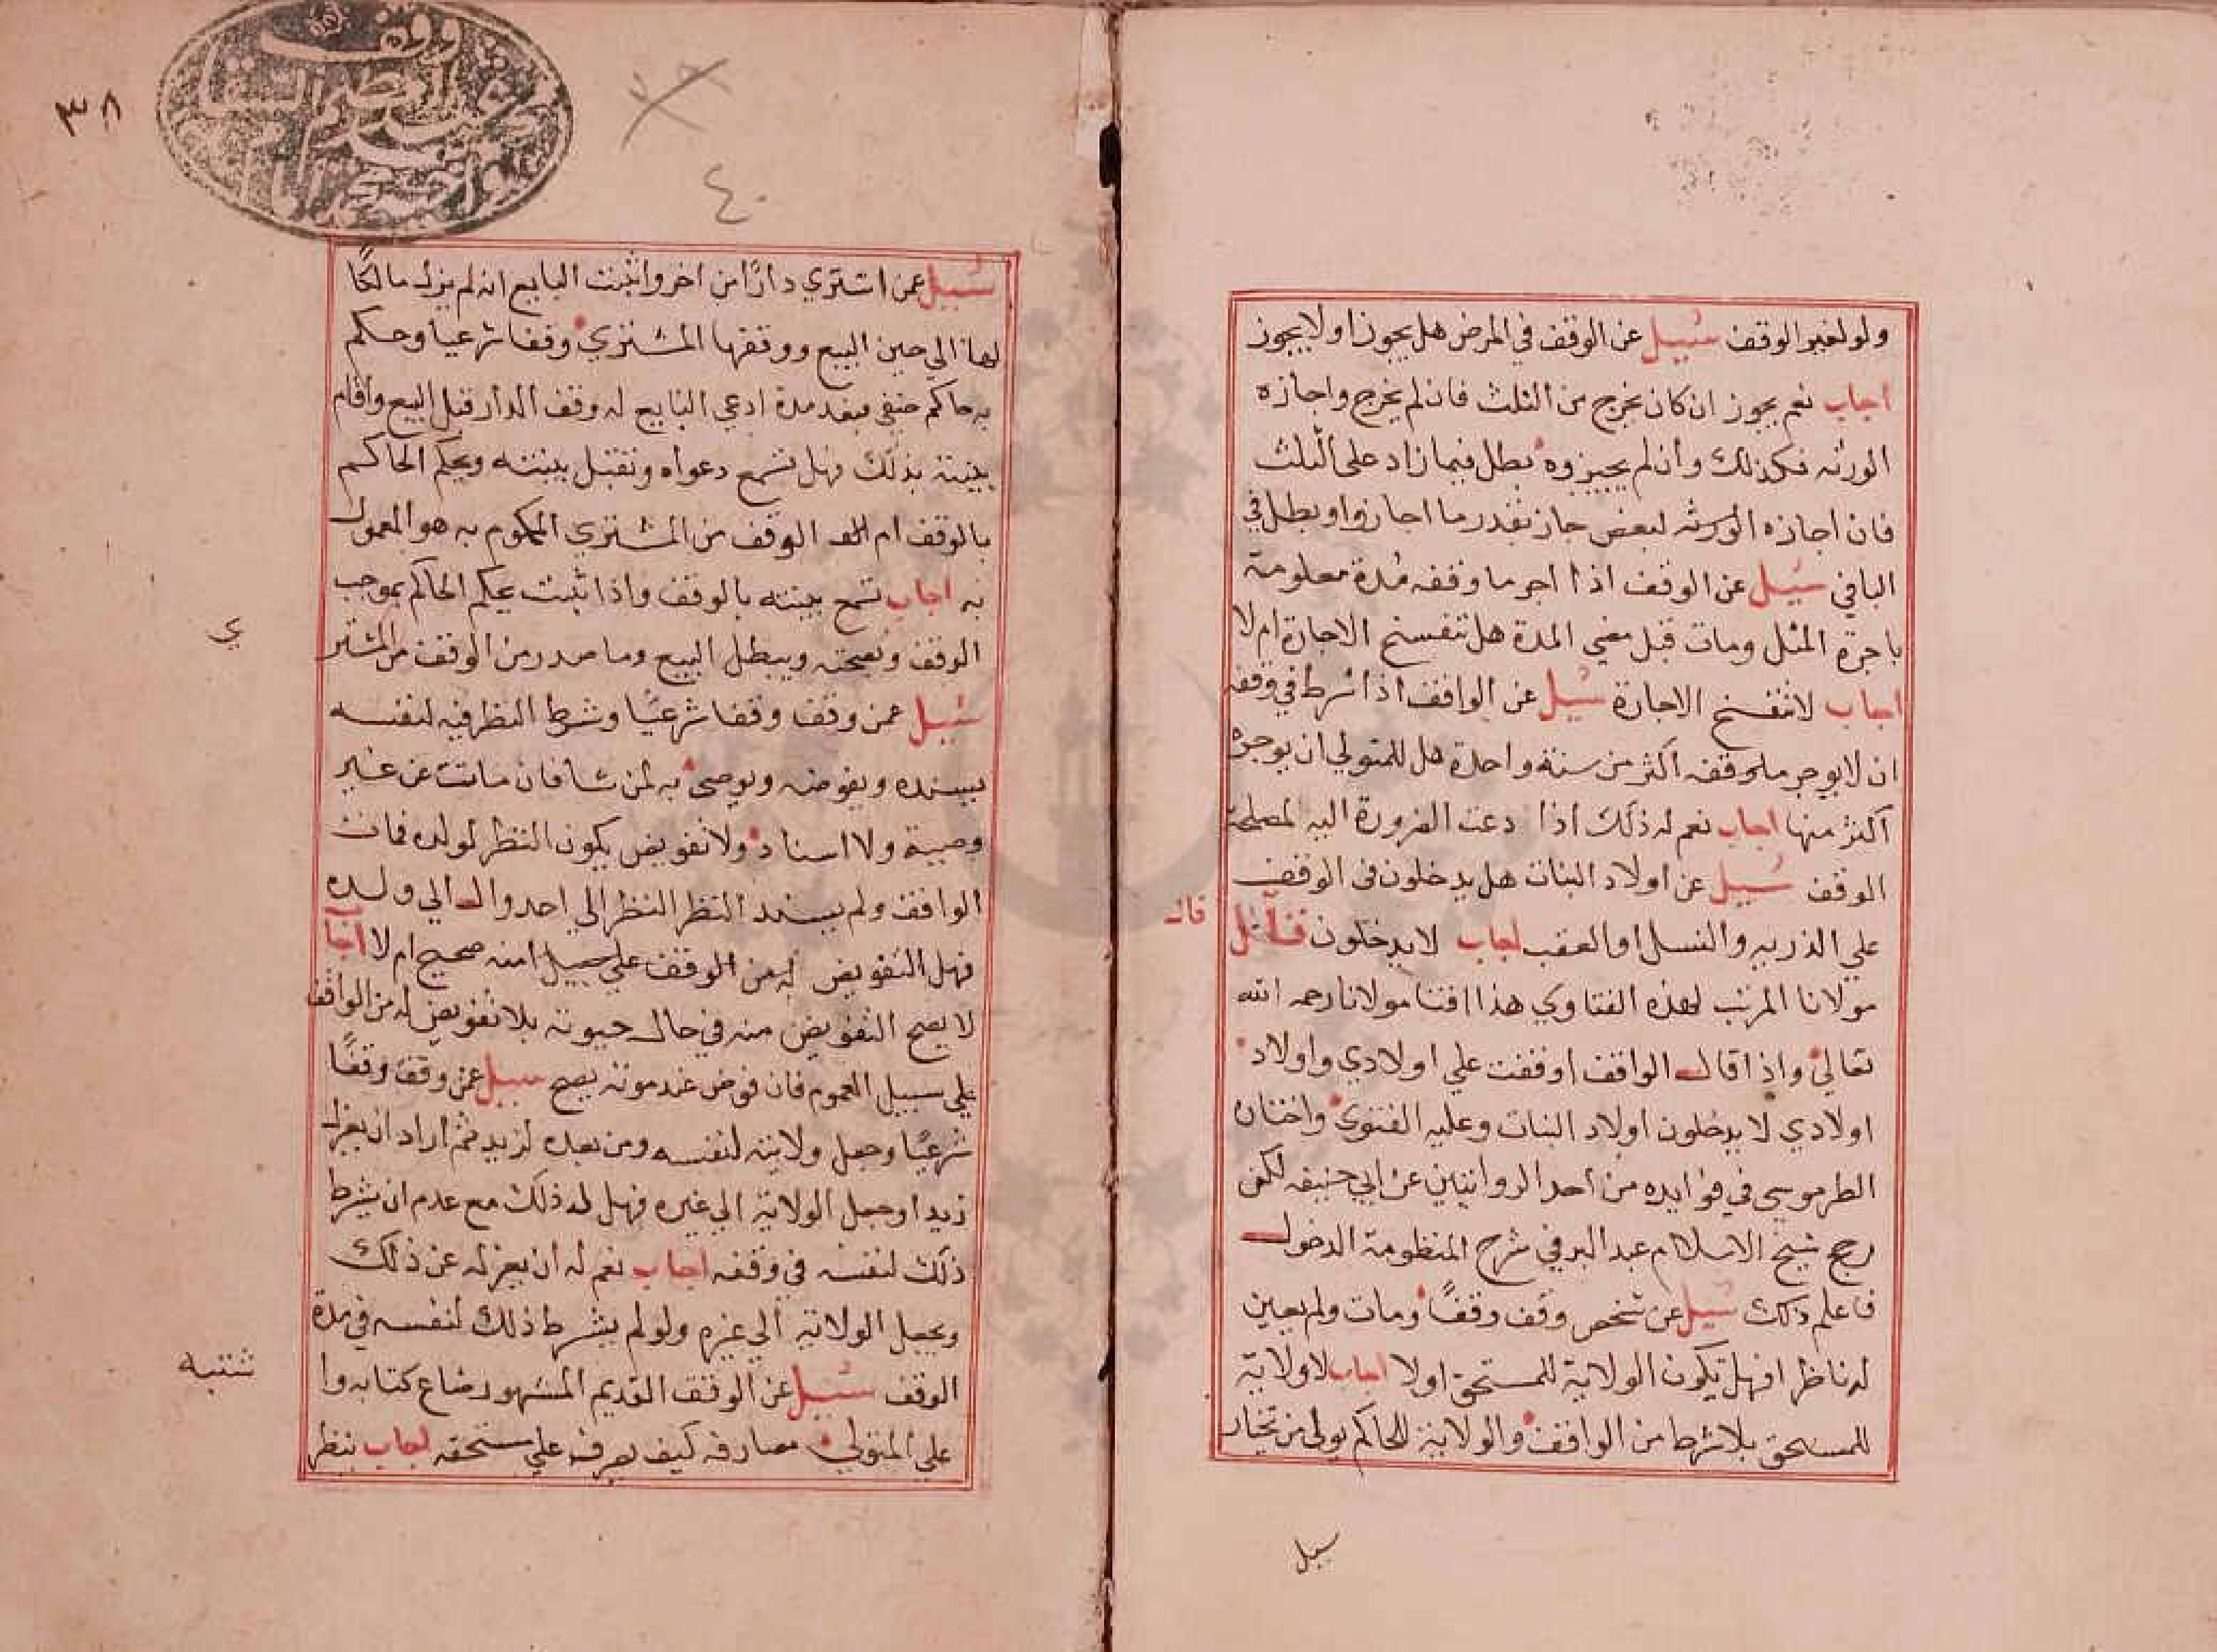 ولو لغير الوقف سئيل عن الوقف في المرض هل يجوز او لا يجوز
اجاب نعم يجوز ان كان يخرج من الثلث فان لم يخرج واجازه
الورثه فكذلك وان لم يجيزوه بطل فيما زاد على الثلث
فان اجازه الورثه لبعض جاز بقدر ما اجازوا وبطل في
الباقي سئيل عن الوقف اذا اجر ما وقفه مدة معلومة
باجرة المثل ومات قبل مضي المدة هل تنفسخ الاجارة ام لا
اجاب لا تنفسخ الاجارة سئيل عن الواقف اذا شرط في وقفه
ان لا يوجر ما وقفه اكثر من سنة واحدة هل للمتولي ان يوجره
اكثر منها اجاب نعم له ذلك اذا دعت الضرورة اليه لمصلحة
الوقف سئيل عن اولاد البنات هل يدخلون في الوقف
علي الذريه والنسل او العقب اجاب لا يدخلون
قال
مولانا المرتب لهذه الفتاوي هذا افتا مولانا رحمه الله
تعالي واذا قال الواقف اوقفت علي اولادي واولاد
اولادي لا يدخلون اولاد البنات وعليه الفتوي واختان
الطرموسي في فوايده من احد الروايتين عن ابي حنيفه لكن
رجح شيخ الاسلام عبد البر في شرح المنظومة الدخول
فاعلم ذلك سئيل عن شخص وقف وقفًا ومات ولم يعين
له ناظرا فهل تكون الولاية للمستحق اولا اجاب لا ولاية
للمستحق بلا شرط من الواقف والولاية للحاكم يولي من تختار
سيل
٣٨
وقف
٤٠
سئيل عمن اشتري دارًا من اخر واثبت البايع انه لم يزل مالكًا
لها الي حين البيع ووقفها المشتري وقفا شرعيا وحكم
به حاكم حنفي فبعد مدة ادعي البايع له وقف الدار قبل البيع واقام
بينة بذلك فهل تسمع دعواه وتقبل بينته ويحكم الحاكم
بالوقف ام الوقف من المشتري المحكوم به هو المعمول
به اجاب تسمع بينته بالوقف واذا ثبت يحكم الحاكم بموجب
الوقف وبصحته ويبطل البيع وما صدر من الوقف من المشتر
ي
سئيل عمن وقف وقفا شرعيًا وشرط النظر فيه لنفسه
يسنده ويفوضه ويوصي به لمن شا فان مات عن غير
وصية ولا اسناد ولا تفويض يكون النظر لولده فمات
الواقف ولم يسند النظر النظر الي احد وال الي ولده
فهل التفويض له من الوقف علي سبيل امنه صحيح ام لا اجاب
لا يصح التفويض منه في حال حيوته بلا تفويض له من الواقف
علي سبيل العموم فان فوض عند موته يصح سبيل عمن وقف وقفًا
شرعيًا وجعل ولايته لنفسه ومن بعده لزيد فثم اراد ان يعزل
زيدا وجعل الولاية الي غيره فهل له ذلك مع عدم ان يشرط
ذلك لنفسه في وقفه اجاب نعم له ان يعزله عن ذلك
ويجعل الولاية الي غيره ولو لم يشرط ذلك لنفسه في مدة
الوقف سئيل عن الوقف القديم المشهور ضاع كتابه وا
شتبه
على المتولي مصارفه كيف يصرف علي مستحقه اجاب ينظر